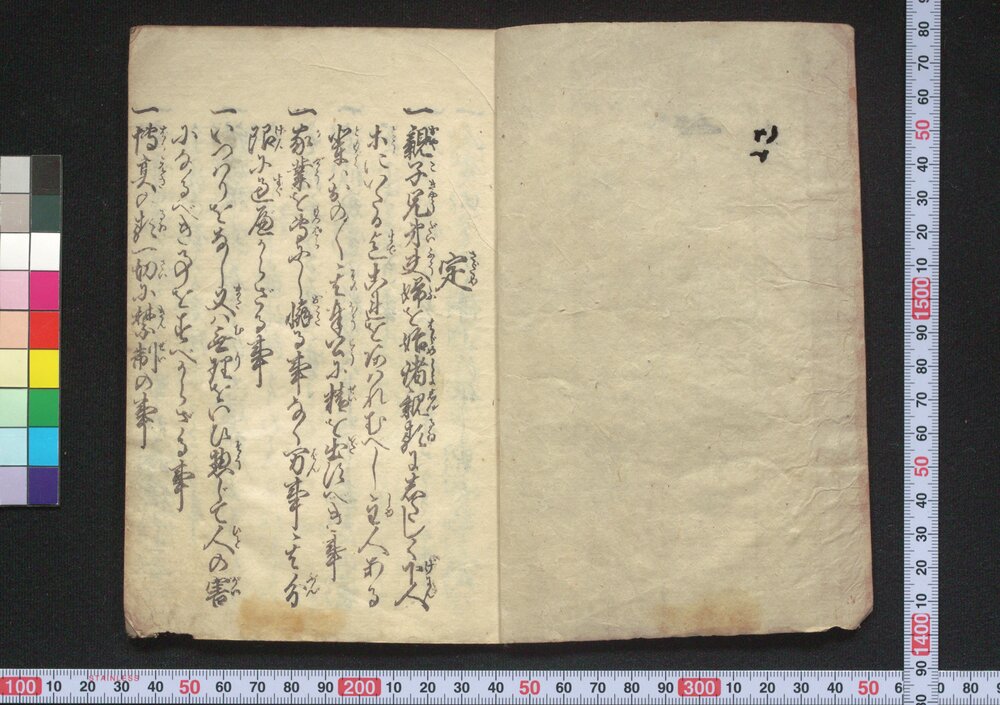 定
一親子兄弟夫婦を始諸親類にしたしく下人
等にいたる迄これをあわれむへし主人ある
輩ハおの〱其奉公に精を出すへき事
一家業を専にし懈る事なく万事其分
限に過べからざる事
一いつわりをなし又ハ無理をいひ惣じて人の害
になるべき事をすへからざる事
一博奕の類一切に禁制の事
STAINLESS